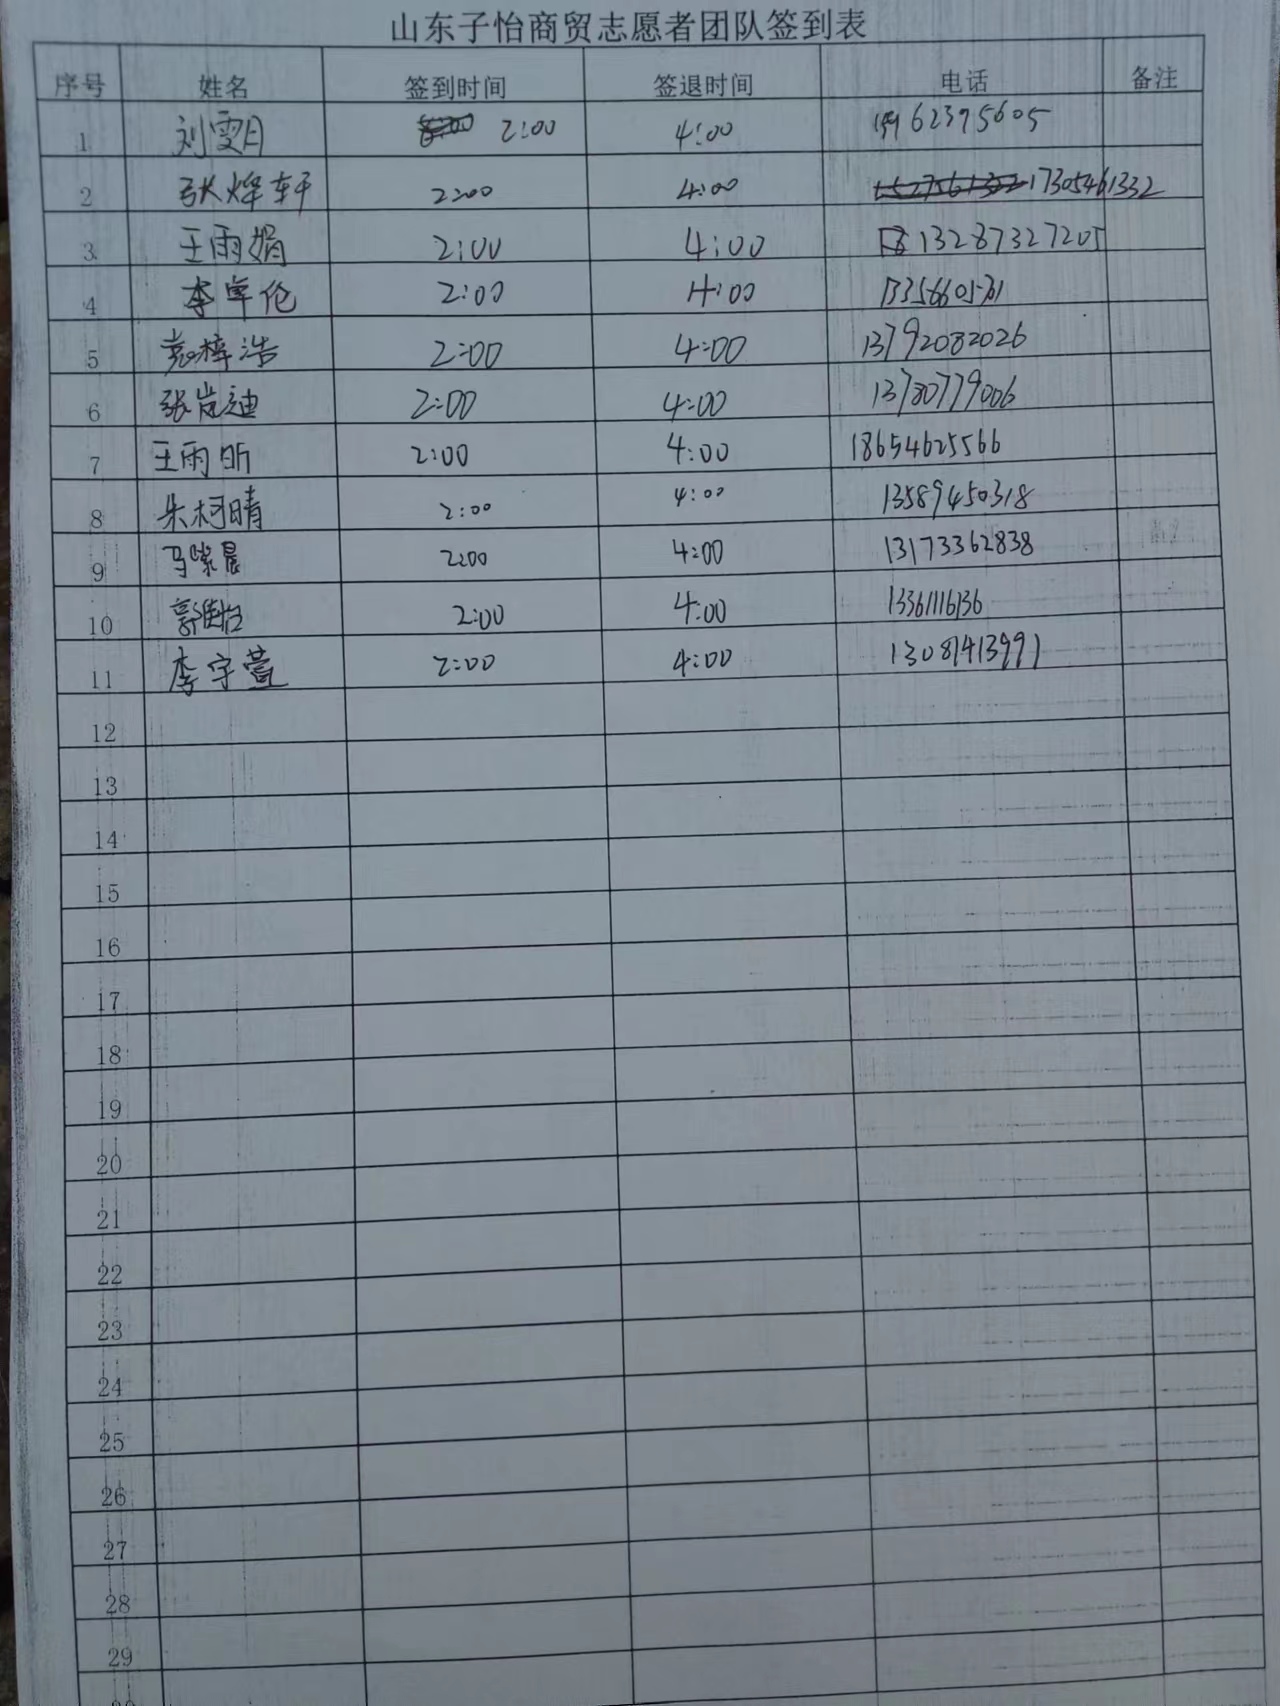 山东子怡商贸志愿者团队签到表
序号 姓名 签到时间 签退时间 电话 备注
1 刘雯月 2:00 4:00 62395605
2 张烨轩 2:00 4:00 17305461332
3 王雨娟 2:00 4:00 13287327205
4 李 伦 2:00 4:00
5 袁梓浩 2:00 4:00 13792082026
6 张岚迪 2:00 4:00 13780779006
7 王雨昕 2:00 4:00 18654625566
8 朱柯晴 2:00 4:00 13589450318
9 马 晨 2:00 4:00 13173362838
10 郭佳怡 2:00 4:00 13361116136
11 李宇萱 2:00 4:00 13081413991
12
13
14
15
16
17
18
19
20
21
22
23
24
25
26
27
28
29